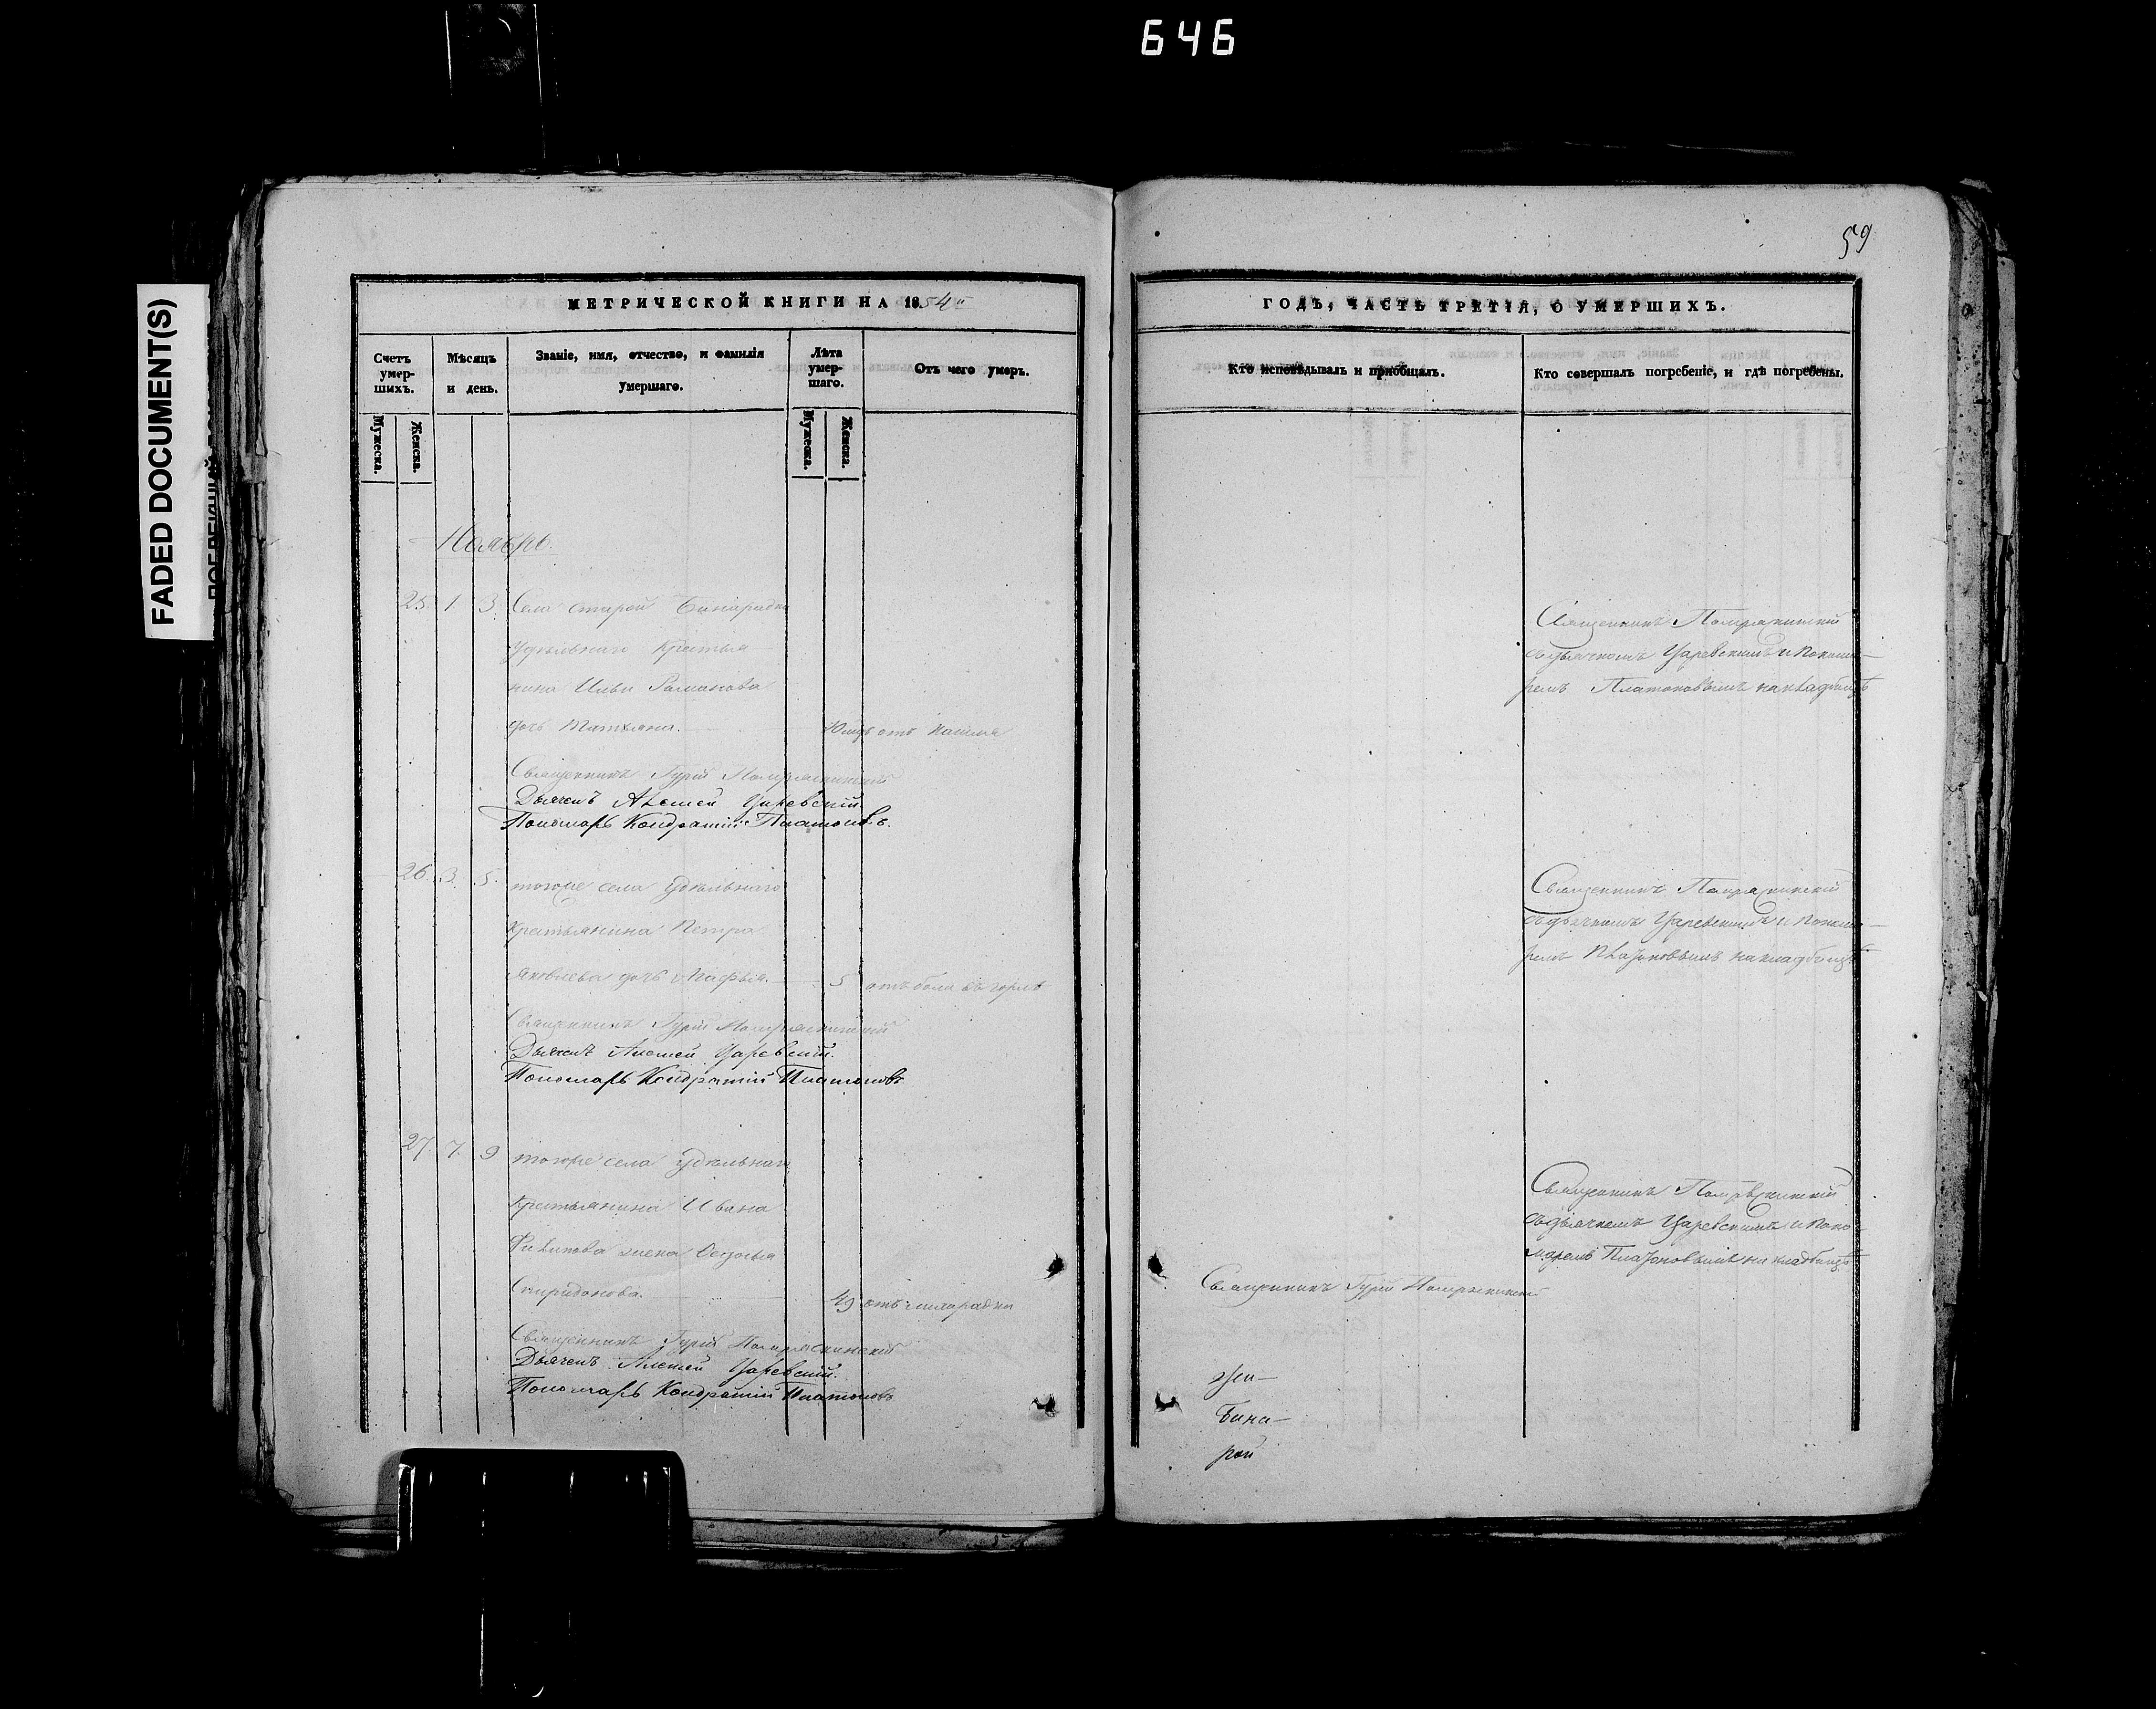 646
FADED DOCUMENT(S)
59
МЕТРИЧЕСКОЙ КНИГИ НА 1854й
Счетъ умер-шихъ.
Мужеска.
Женска.
Мѣсяцъ и день.
Званіе, имя, отчество, и фамилія умершаго.
Лѣта умер-шаго.
Мужеска.
Женска.
Отъ чего умеръ.
Ноябрь.
25. 1 3. Села старой Бинарадки
удѣльнаго крестья-
нина Ильи Романова
дочь Татьяна. отъ кашля
Священникъ Гурій
Дьячекъ Алексей Царевскій.
Пономарь Кондратій Платоновъ.
26. 3. 5. тогоже села удѣльнаго
крестьянина Петра
Яковлева дочь Марфья. 5 отъ боли въ горлѣ
Священникъ Гурій
Дьячекъ Алексей Царевскій.
Пономарь Кондратій Платоновъ
27. 7. 9 тогоже села удѣльнаго
крестьянина Ивана
Филипова жена Федосья
Спиридонова. 49 отъ лихорадки
Священникъ Гурій
Дьячекъ Алексей Царевскій.
Пономарь Кондратій Платоновъ
ГОДЪ, ЧАСТЬ ТРЕТІЯ, О УМЕРШИХЪ.
Кто исповѣдывалъ и пріобщалъ.
Кто совершалъ погребеніе, и гдѣ погребены.
Священникъ
съ дьячкомъ Царевскимъ и Понома-
ремъ Платоновымъ на кладбищѣ
Священникъ
съ дьячкомъ Царевскимъ и Понома-
ремъ Платоновымъ на кладбищѣ
Священникъ
съ дьячкомъ Царевскимъ и Поно-
маремъ Платоновымъ на кладбищѣ
Священникъ Гурій
Бина-
рой